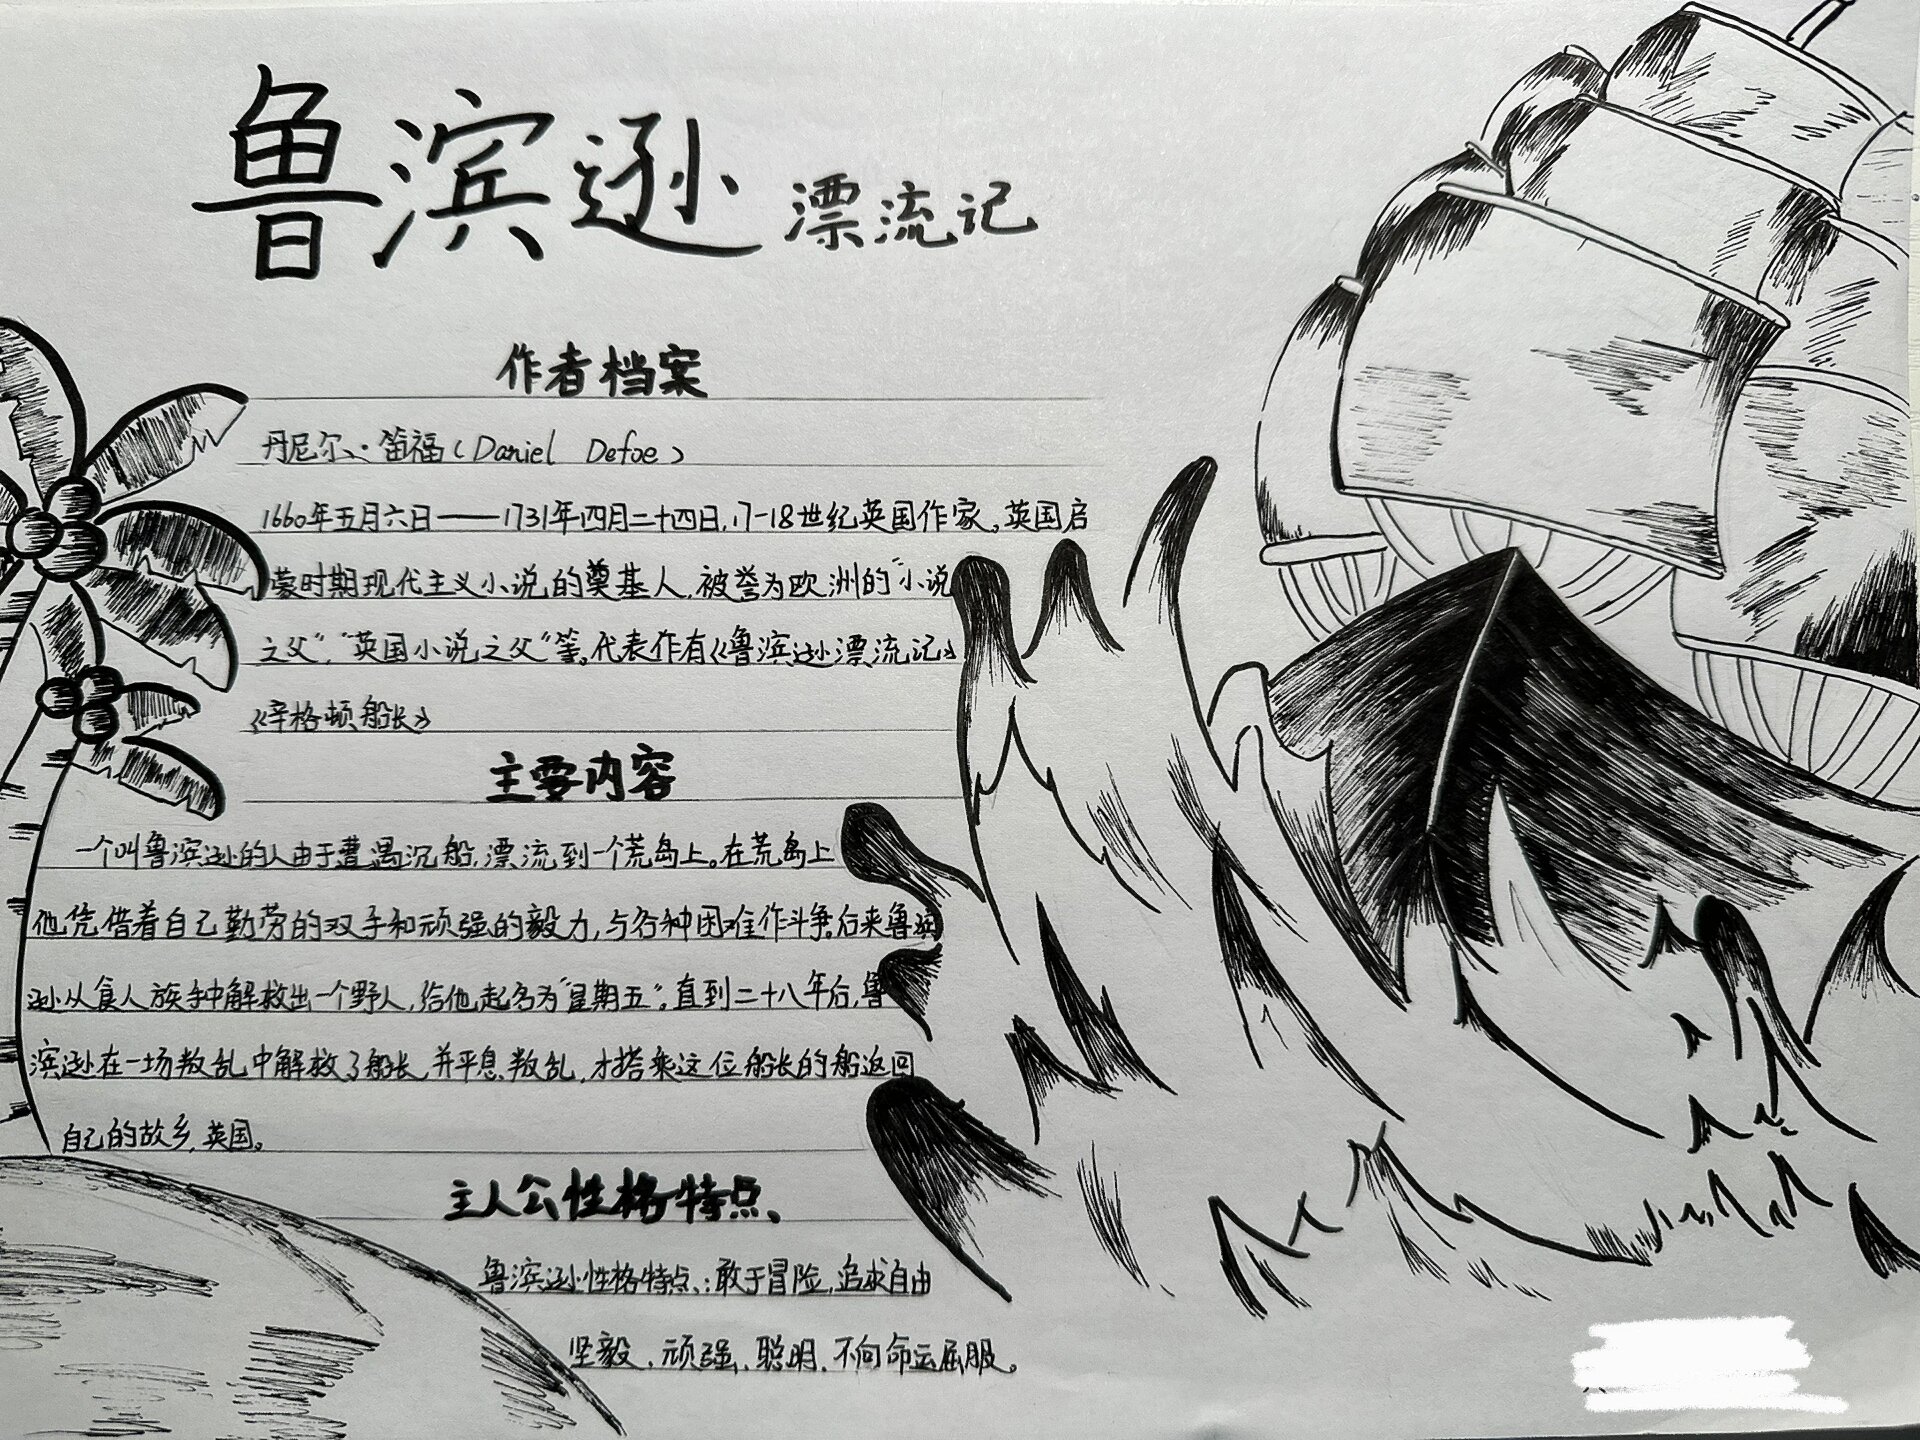 鲁滨逊漂流记
作者档案
丹尼尔·笛福(Daniel Defoe)
1660年五月六日——1731年四月二十四日,17-18世纪英国作家。英国启
蒙时期现代主义小说的奠基人,被誉为欧洲的“小说
之父”,“英国小说之父”等。代表作有《鲁滨逊漂流记》
《辛格顿船长》
主要内容
一个叫鲁滨逊的人由于遭遇沉船,漂流到一个荒岛上。在荒岛上
他凭借着自己勤劳的双手和顽强的毅力,与各种困难作斗争。后来鲁滨
逊从食人族手中解救出一个野人,给他起名为“星期五”。直到二十八年后,鲁
滨逊在一场叛乱中解救了船长,并平息叛乱,才搭乘这位船长的船返回
自己的故乡,英国。
主人公性格特点、
鲁滨逊性格特点、:敢于冒险,追求自由
坚毅、顽强、聪明、不向命运屈服。